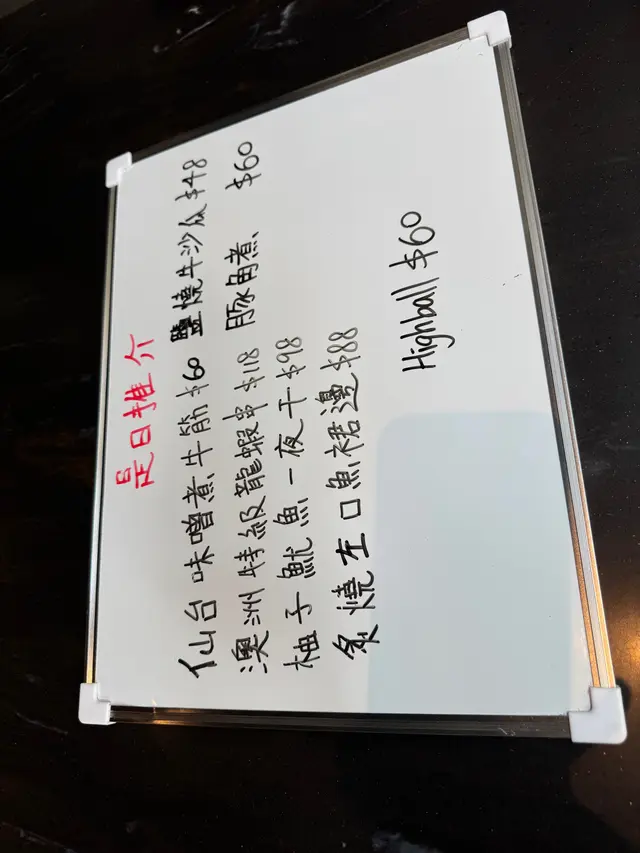 是日推介
仙台味噌煮牛筋$60 鹽燒牛沙瓜$48
澳洲特級龍蝦串$118 豚角煮 $60
柚子魷魚一夜干$98
炙燒左口魚裙邊$88
Highball $60